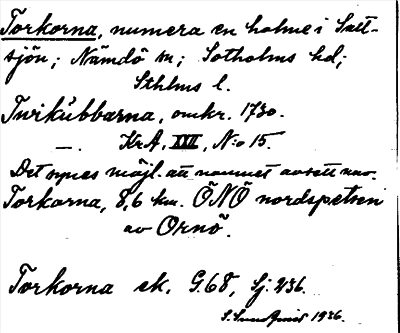 Torkorna, numera en holme i Salt-
sjön; Nämdö sn; Sotholms hd;
Sthlms l.
Twikübbarna, omkr. 1730.
—. KrA, XXI, N:o 15.
Det synes möjl. att namnet avsett nuv.
Torkorna, 8,6 km. ÖNÖ nordspetsen
av Ornö.
Torkorna ek. G.68, Sj. 236.
S. Sundqvist 1936.